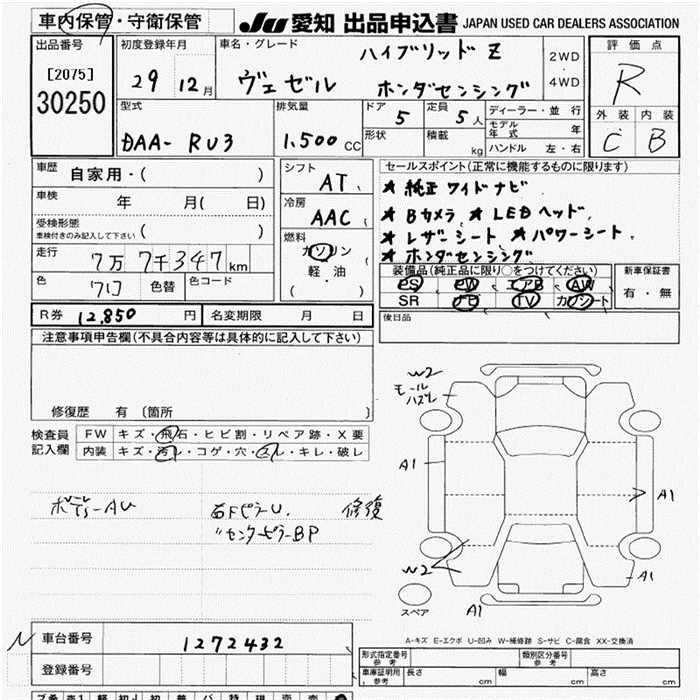 車内保管・守衛保管
JU 愛知 出品申込書 JAPAN USED CAR DEALERS ASSOCIATION
出品番号
[2075]
30250
初度登録年月
29 12月
車名・グレード
ハイブリッドZ
ヴェゼル ホンダセンシング
2WD
・
4WD
評価点
R
外装 内装
C B
型式
DAA- RU3
排気量
1.500 CC
ドア 5
定員 5人
形状
積載 kg
ディーラー・並行
モデル年式 年
ハンドル 左・右
車歴 自家用・( )
車検 年 月( 日)
受検形態
車検付きのみ記入して下さい ( )
走行 7万7千347km
色 クロ 色替 色コード
シフト AT
冷房 AAC
燃料
ガソリン
軽・油
( ・ )
セールスポイント(正常に機能するものに限ります)
★ 純正ワイドナビ
★ Bカメラ ★ LEDヘッド
★ レザーシート ★ パワーシート
★ ホンダセンシング
装備品(純正品に限り○をつけてください)
PS PW エアB AW
SR ナビ TV カワシート
新車保証書
有・無
R券 12,850円 名変期限 月 日
後日品
注意事項申告欄(不具合内容等は具体的に記入して下さい)
修復歴 有 〔箇所 〕
検査員
記入欄
FW キズ・飛石・ヒビ割・リペア跡・X要
内装 キズ・汚レ・コゲ・穴・スレ・キレ・破レ
右Fピラー U. 修復
〃センターピラー BP
W2
モール
ハズレ
A1
A1
W2
A1
A1
スペア
A-キズ E-エクボ U-凹み W-補修跡 S-サビ C-腐食 XX-交換済
車台番号 1272432
登録番号
形式指定番号
参考
類別区分番号
参考
車庫証明用
参考
長さ cm 幅 cm 高さ cm